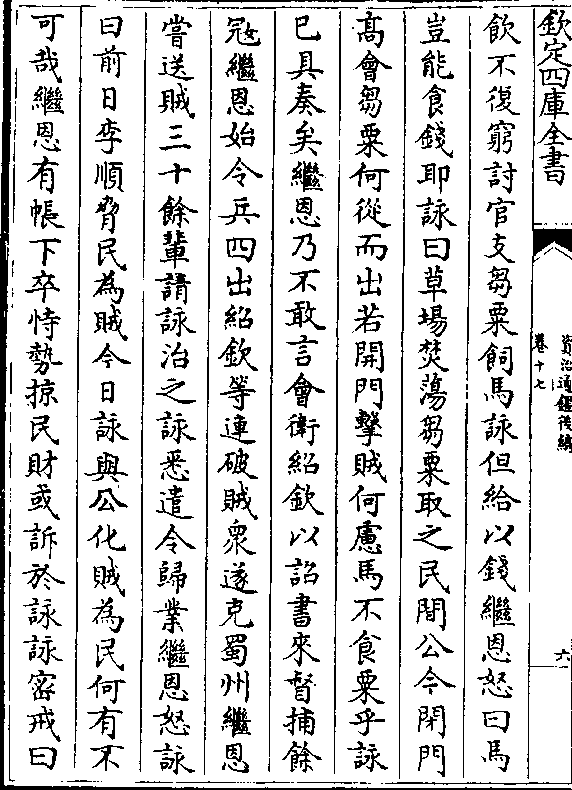 欽定四庫全書
資治通鑑後編
卷十七
六
飲不復窮討官支芻粟飼馬詠但給以錢繼恩怒曰馬
豈能食錢耶詠曰草場焚蕩芻粟取之民間公今閉門
髙會芻粟何從而出若開門擊賊何慮馬不食粟乎詠
已具奏矣繼恩乃不敢言會衛紹欽以詔書來督捕餘
冦繼恩始令兵四出紹欽等連破賊衆遂克蜀州繼恩
嘗送賊三十餘輩請詠治之詠悉遣令歸業繼恩怒詠
曰前日李順脅民為賊今日詠與公化賊為民何有不
可哉繼恩有帳下卒恃勢掠民財或訴於詠詠宻戒曰